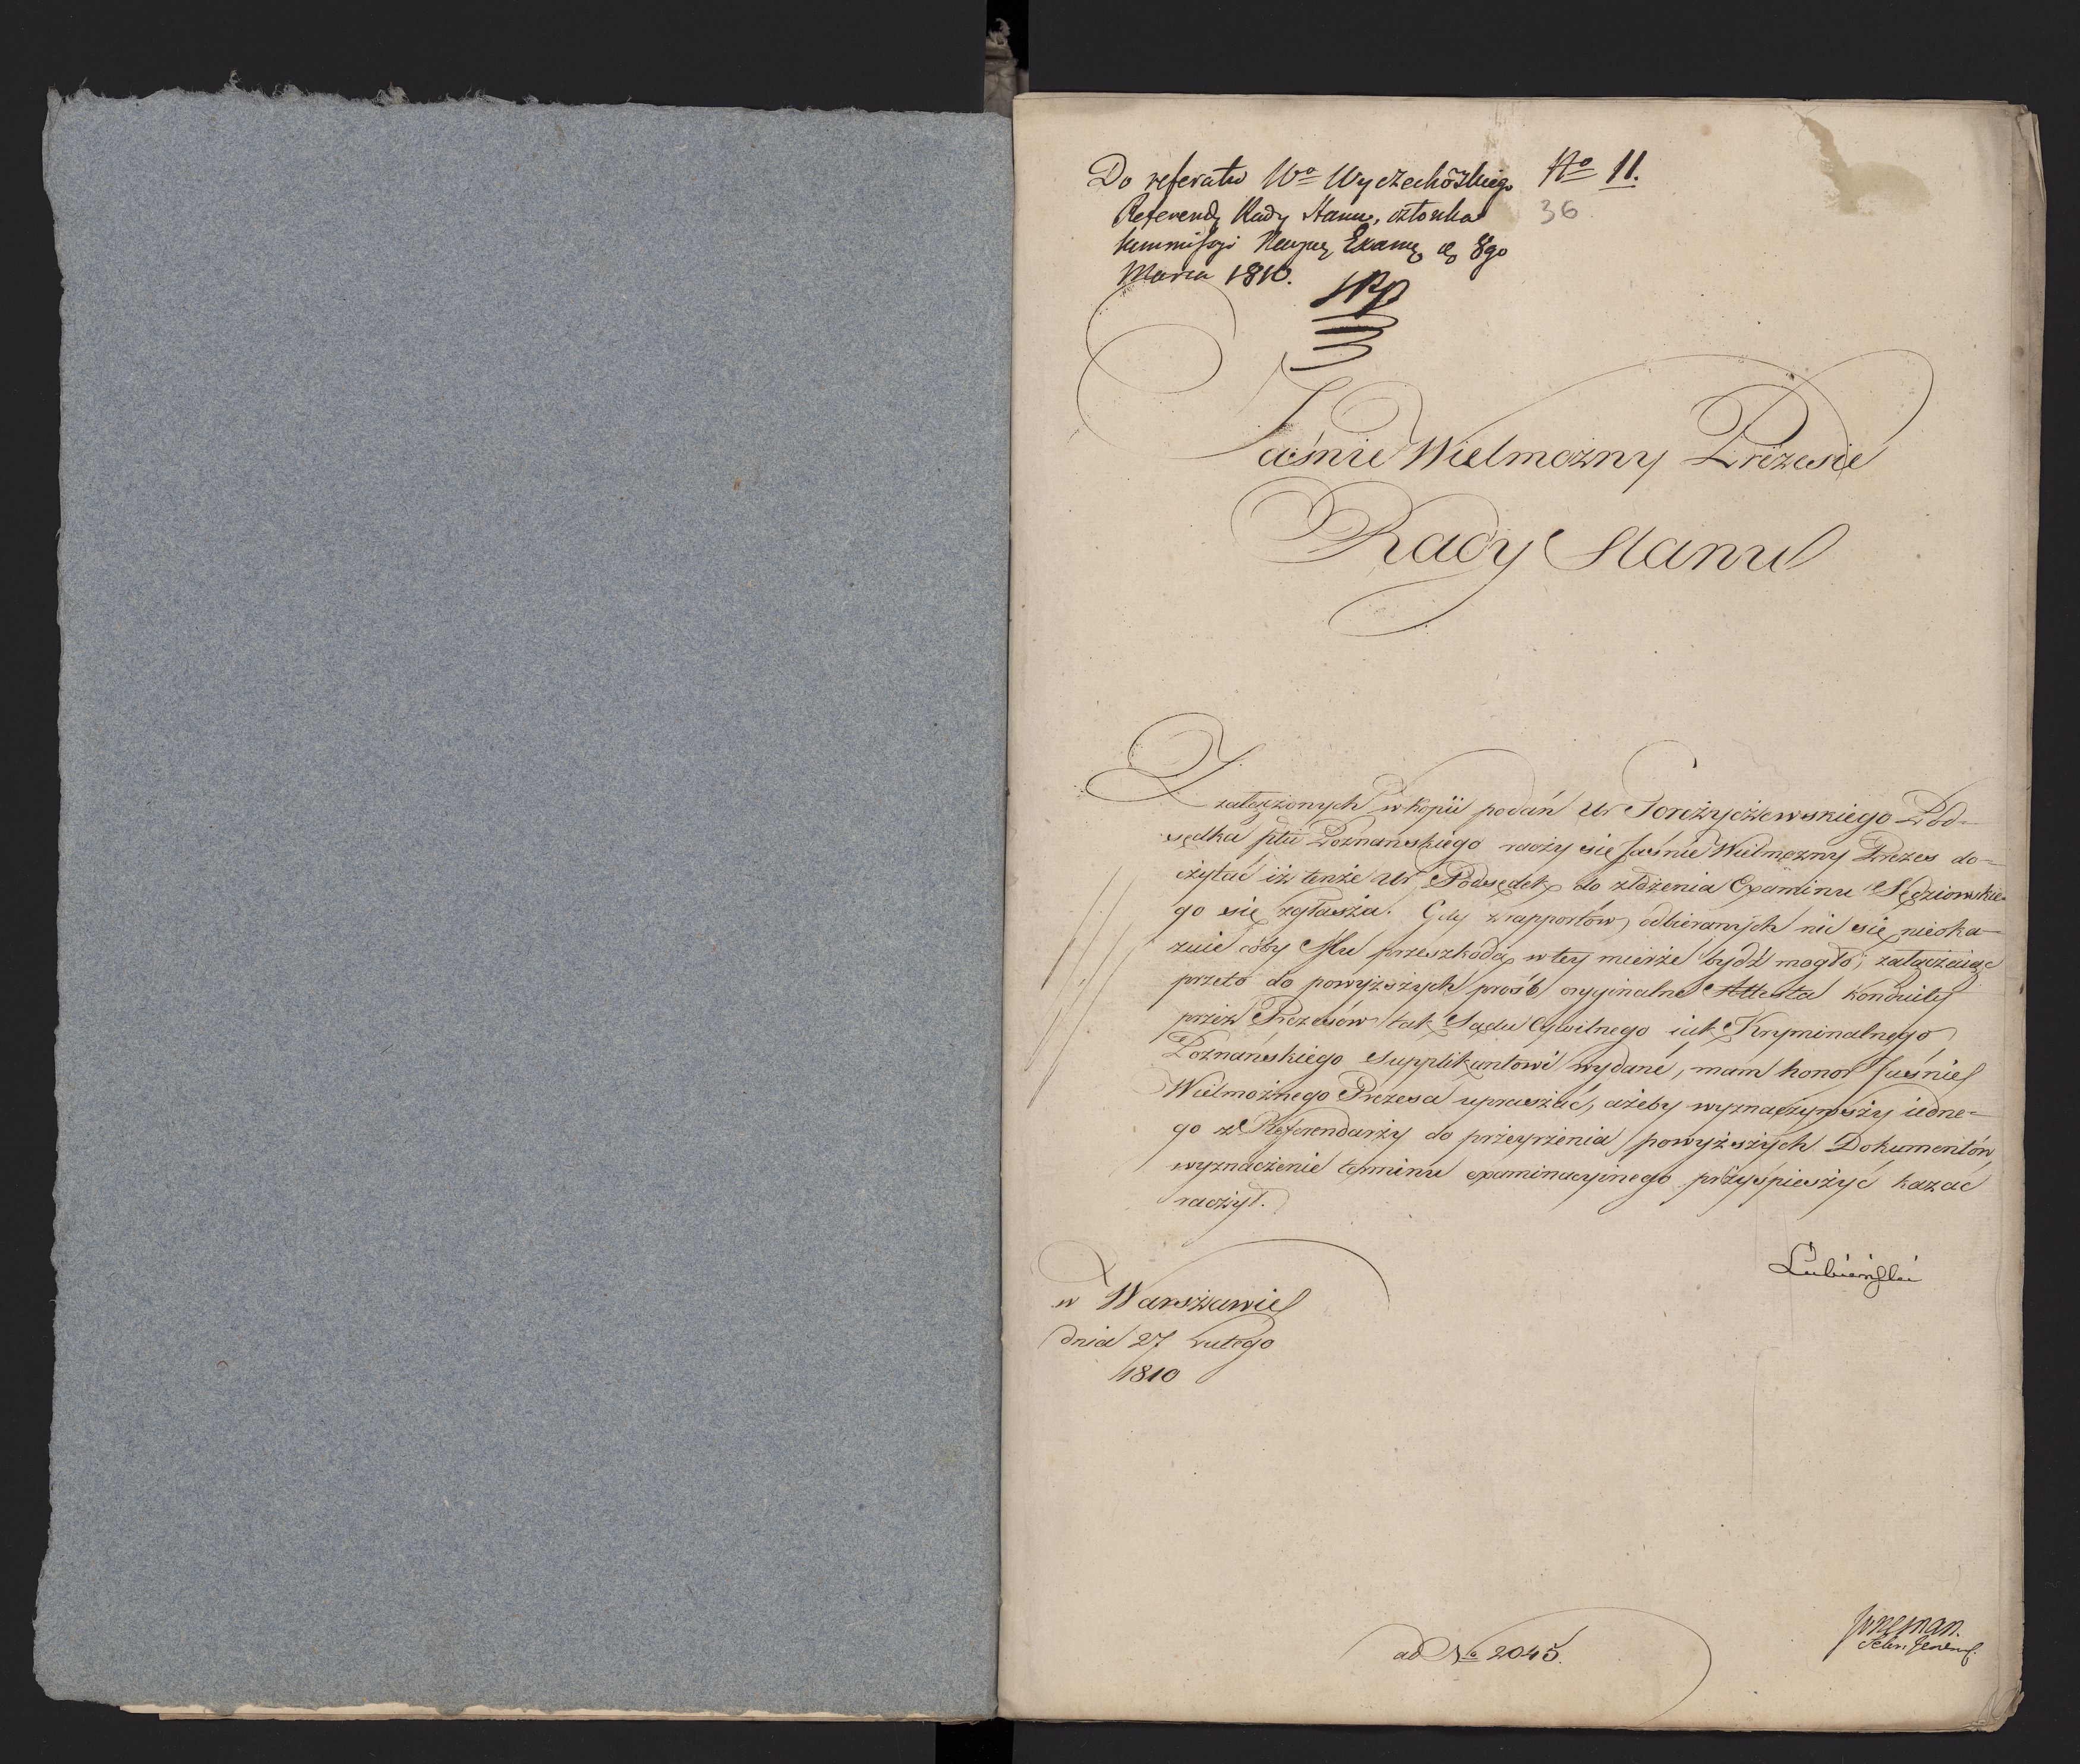 Do referatu Wo Wyczechowskiego No 11.
Referend. Rady Stanu, członka 36
kommissyi Najwyż Exam. d. 8go
Marca 1810.
Jaśnie Wielmożny Prezesie
Rady Stanu
Z załączonych w kopii podań Ur Poreżyczewskiego Pod-
sędka pttu Poznańskiego raczy się Jaśnie Wielmożny Prezes do-
czytać iż tenże Ur Podsędek do złożenia Examinu Sędziowskie-
go się zgłasza. Gdy z rapportów odbieranych nic się nieoka-
zuie coby Mu przeszkodą w tey mierze bydź mogło; załączaiąc
przeto do powyższych prośb oryginalne Attesta konduity
przez Prezesów tak Sądu Cywilnego iak Kryminalnego
Poznańskiego Supplikantowi wydane, mam honor Jaśnie
Wielmożnego Prezesa upraszać, ażeby wyznaczywszy iedne-
go z Referendarzy do przeyrzenia powyższych Dokumentów,
wyznaczenie terminu examinacyinego przyśpieszyć kazać
raczył.
Lubieński
w Warszawie
dnia 27 Lutego
1810
ad No 2045.
Sekr. Jeneral.